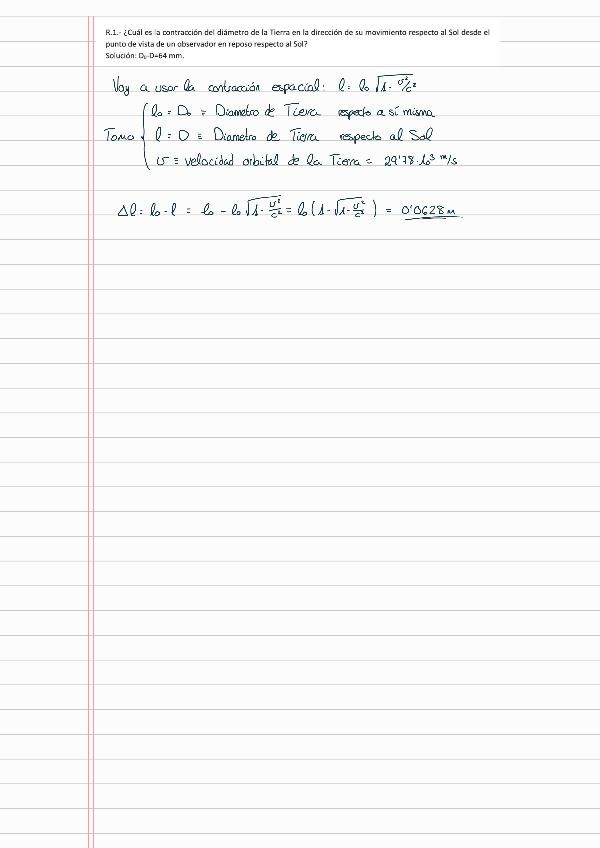 R.1.- ¿Cuál es la contracción del diámetro de la Tierra en la dirección de su movimiento respecto al Sol desde el
punto de vista de un observador en reposo respecto al Sol?
Solución: D₀-D=64 mm.
Voy a usar la contracción espacial: l = l₀ √1 - v²/c²
l₀ = D₀ ≡ Diametro de Tierra respecto a sí misma
Tomo { l = D ≡ Diametro de Tierra respecto al Sol
v ≡ velocidad orbital de la Tierra = 29'78·10³ m/s
Δl = l₀ - l = l₀ - l₀ √1 - v²/c² = l₀ (1 - √1 - v²/c²) = 0'0628 m